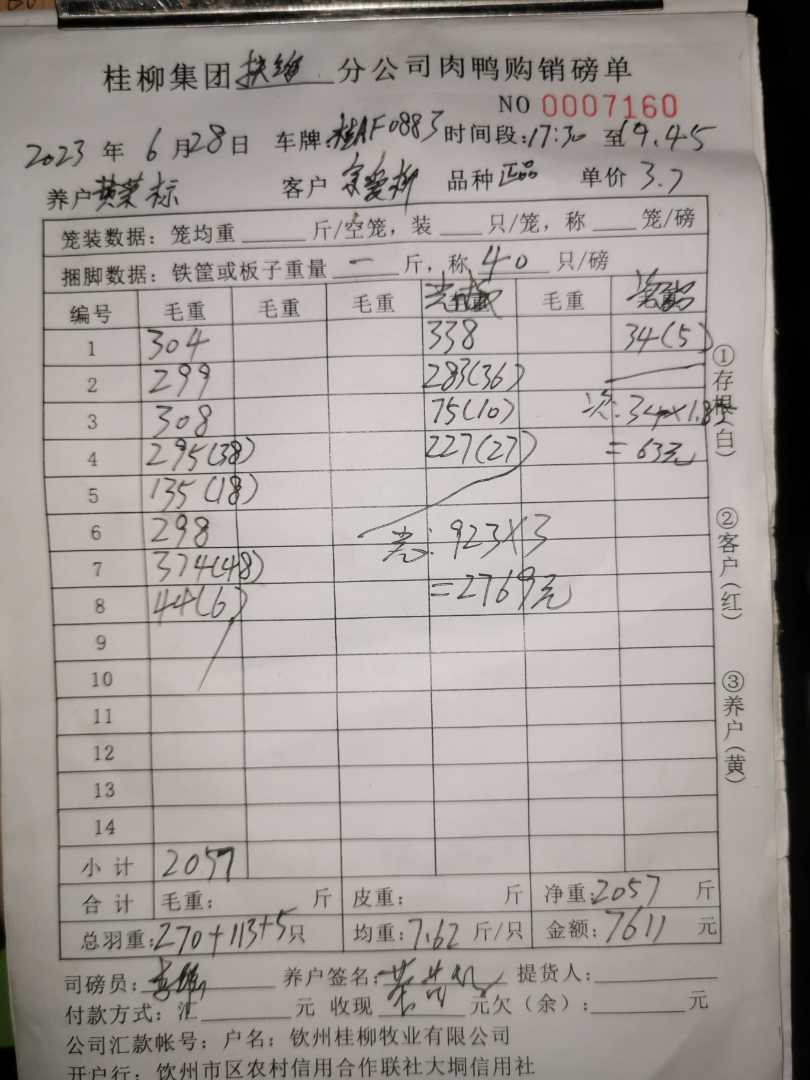 桂柳集团扶绥分公司肉鸭购销磅单
NO 0007160
2023年6月28日 车牌:桂AF0883 时间段:17:30至19.45
养户黄荣标 客户 品种正品 单价3.7
笼装数据:笼均重 斤/空笼,装 只/笼,称 笼/磅
捆脚数据:铁筐或板子重量 一 斤,称40只/磅
编号 毛重 毛重 毛重 毛重
1 304 338 34(5)
2 299 283(36)
3 308 75(10) 次:34×1.85
4 295(38) 227(27) =63元
5 135(18)
6 298 光:923×3
7 374(48) =2769元
8 44(6)
9
10
11
12
13
14
小计 2057
合计 毛重: 斤 皮重: 斤 净重:2057斤
总羽重:270+113+5只 均重:7.62斤/只 金额:7611元
司磅员: 养户签名: 提货人:
付款方式:汇 元 收现 元欠(余): 元
公司汇款帐号:户名:钦州桂柳牧业有限公司
开户行:钦州市区农村信用合作联社大垌信用社
①存根(白)
②客户(红)
③养户(黄)